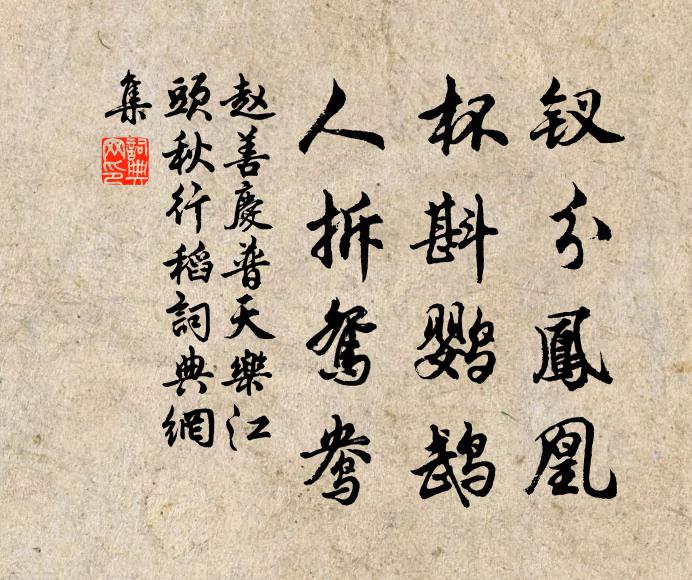 钗分鳳凰
杯斟鹦鹉
人拆鴛鴦
赵善慶普天樂江
頭秋行稻詞典網
集
詞典
网印